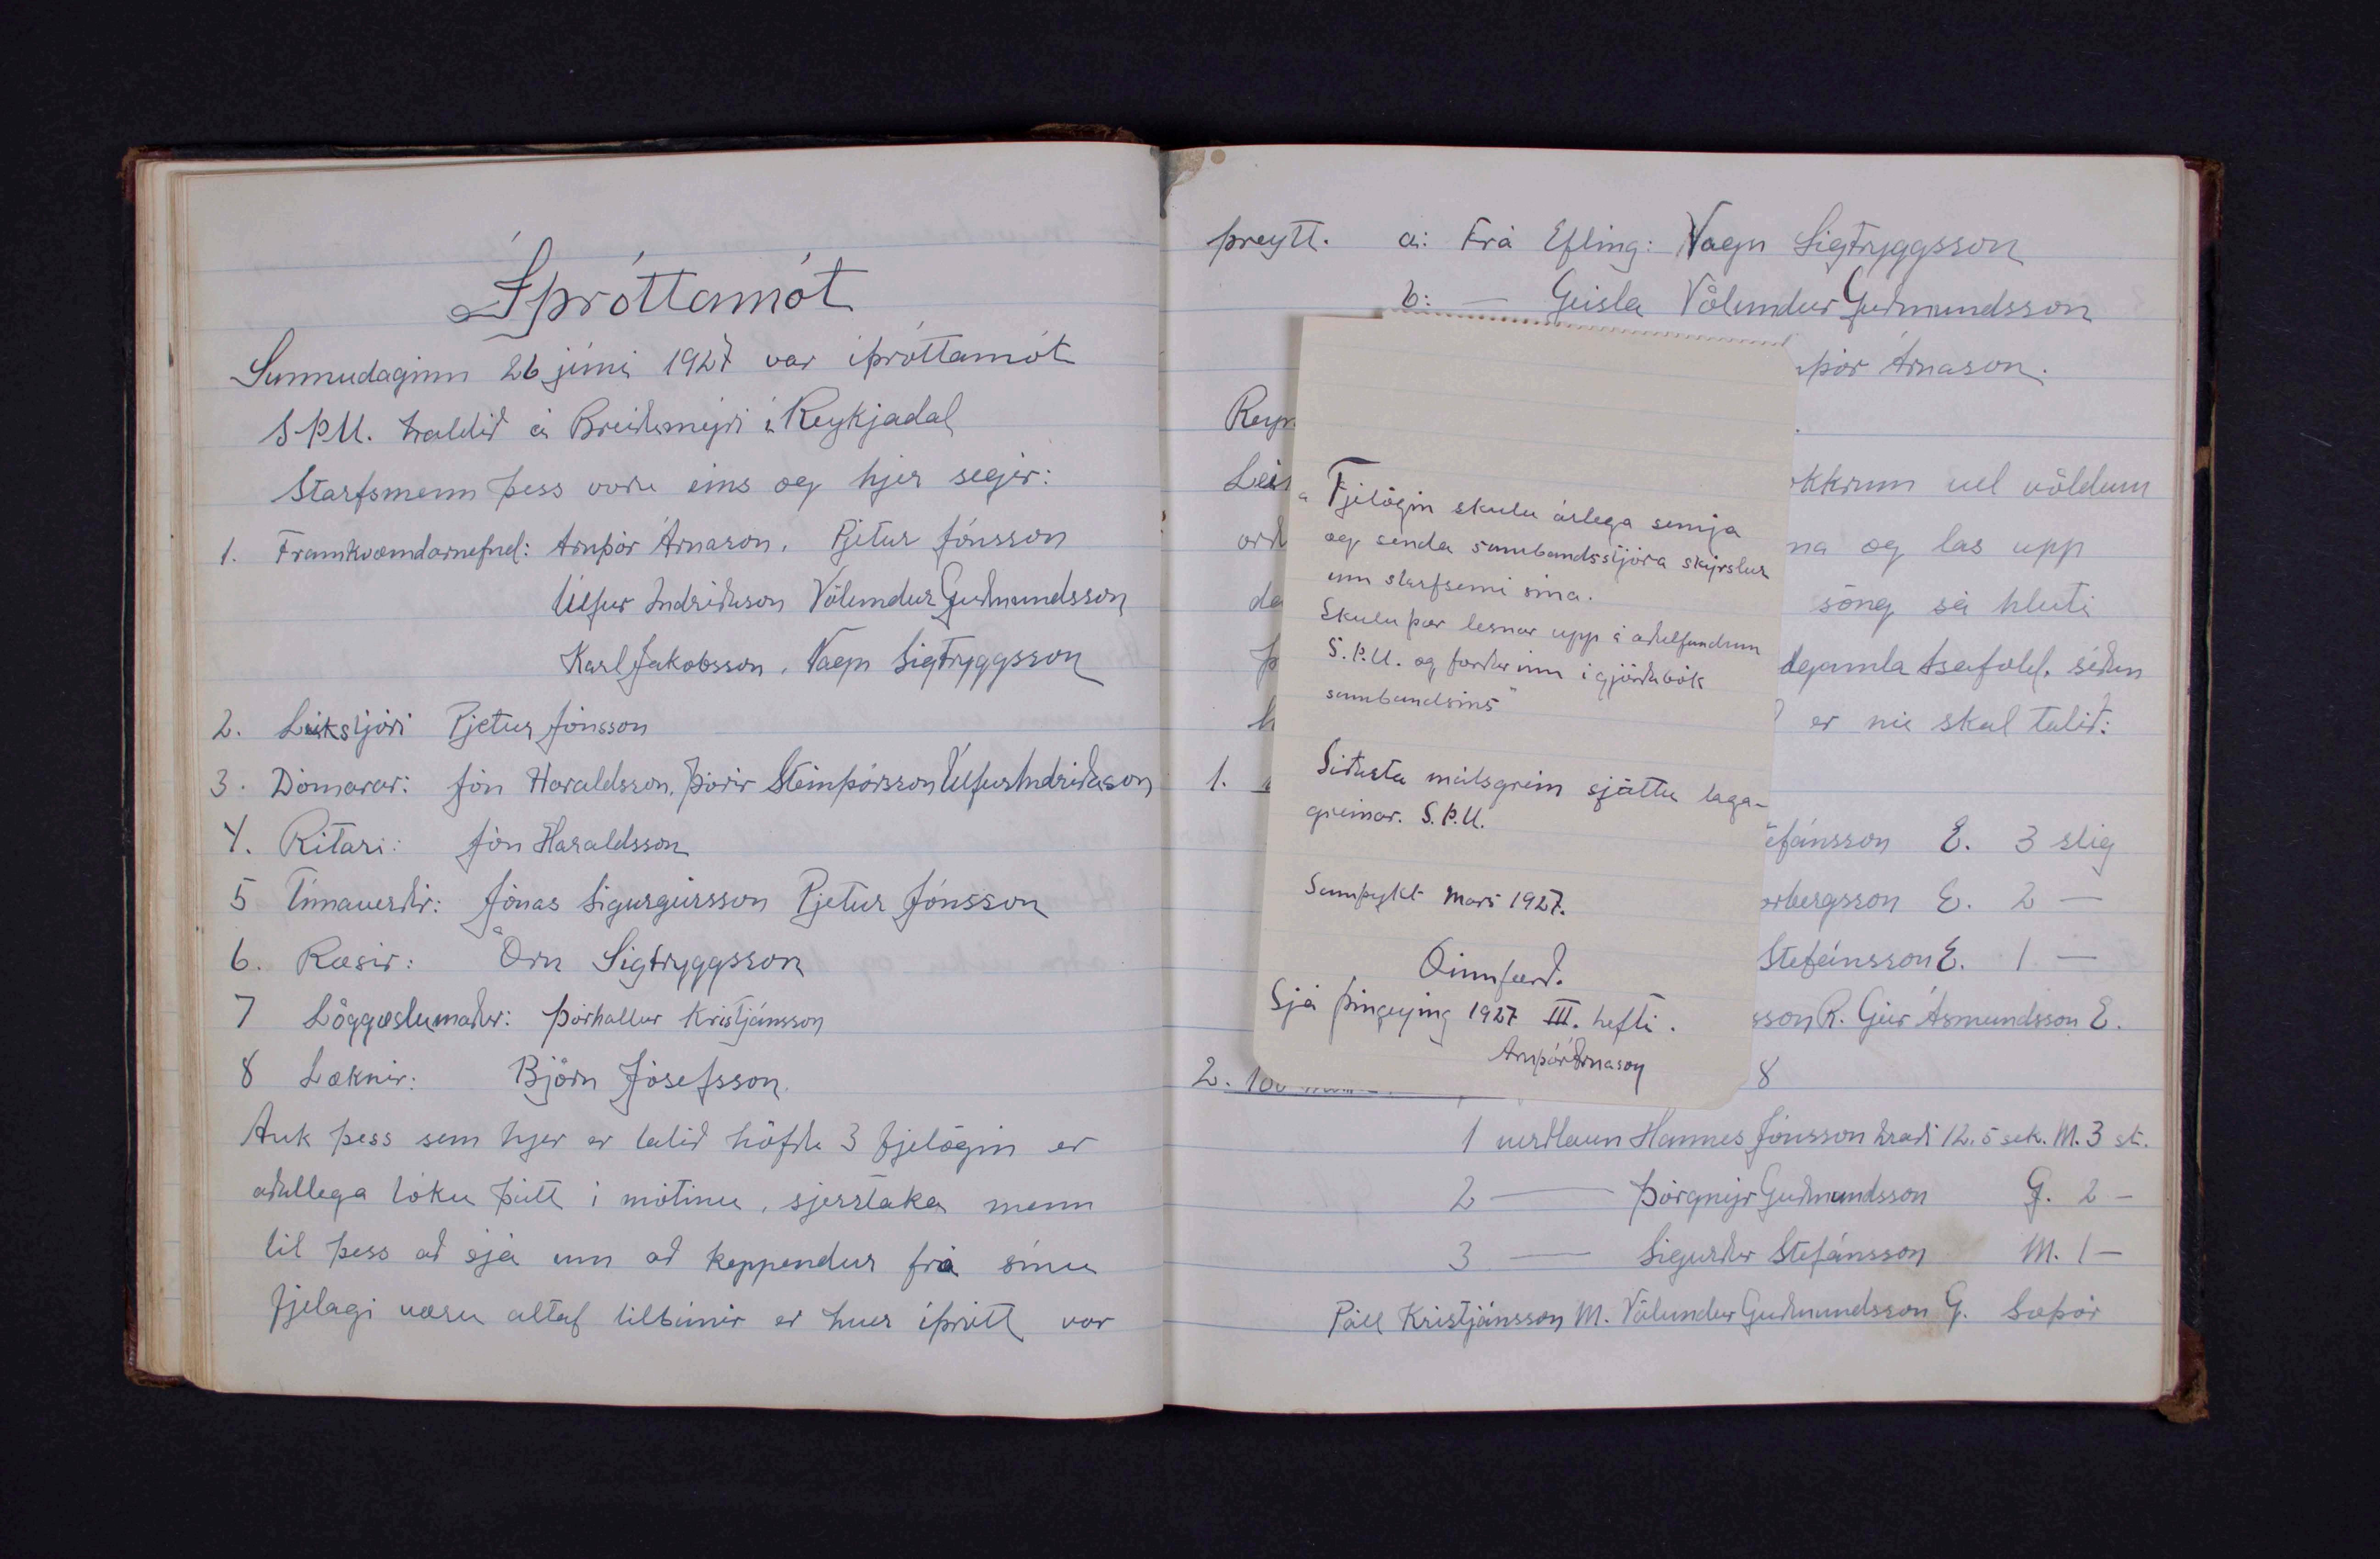 Íþróttamót
Sunnudaginn 26 júni 1927 var íþróttamót
S.Þ.U. haldið á Breiðumýri í Reykjadal
Starfsmenn þess voru eins og hjer segir:
1. Framkvæmdarnefnd: Arnþór Árnason. Pjetur Jónsson
Úlfur Indriðason Völundur Guðmundsson
Karl Jakobsson. Vagn Sigtryggsson
2. Leikstjóri Pjetur Jónsson
3. Dómarar: Jón Haraldsson, Þórir Steinþórsson Úlfur Indriðason
4. Ritari: Jón Haraldsson
5 Tímaverðir: Jónas Sigurgeirsson Pjetur Jónsson
6. Ræsir: Örn Sigtryggsson
7 Löggæslumaður: Þórhallur Kristjánsson
8 Læknir: Björn Jósefsson.
Auk þess sem hjer er talið höfðu 3 fjelögin er
aðallega tóku þátt í mótinu, sjerstaka menn
til þess að sjá um að keppendur frá sínu
fjelagi væru altaf tilbúnir er hver íþrótt var
þreytt. a: Frá Efling: Vagn Sigtryggsson
b: — Geisla Völundur Guðmundsson
þór Árnason.
okkrum vel völdum
na og las upp
söng sá hluti
dgamla Ísafold. síðan
er nú skal talið:
1.
efánsson E. 3 stig
orbergsson E. 2 —
Stefánsson E. 1 —
sson R. Geir Ásmundsson E.
2. 100 8
1 verðlaun Hannes Jónsson hraði 12.5 sek. M. 3 st.
2 — Þórgnýr Guðmundsson G. 2 —
3 — Sigurður Stefánsson M. 1 —
Páll Kristjánsson M. Völundur Guðmundsson G. Sæþór
„Fjelögin skulu árlega semja
og senda sambandsstjóra skýrslur
um starfsemi sína.
Skulu þær lesnar upp á aðalfundum
S.Þ.U. og færðar inn í gjörðabók
sambandsins"
Síðasta málsgrein sjöttu laga-
greinar. S.Þ.U.
Samþykt mars 1927.
Óinnfærð.
Sjá Þingeying 1927 III. hefti.
Arnþór Árnason